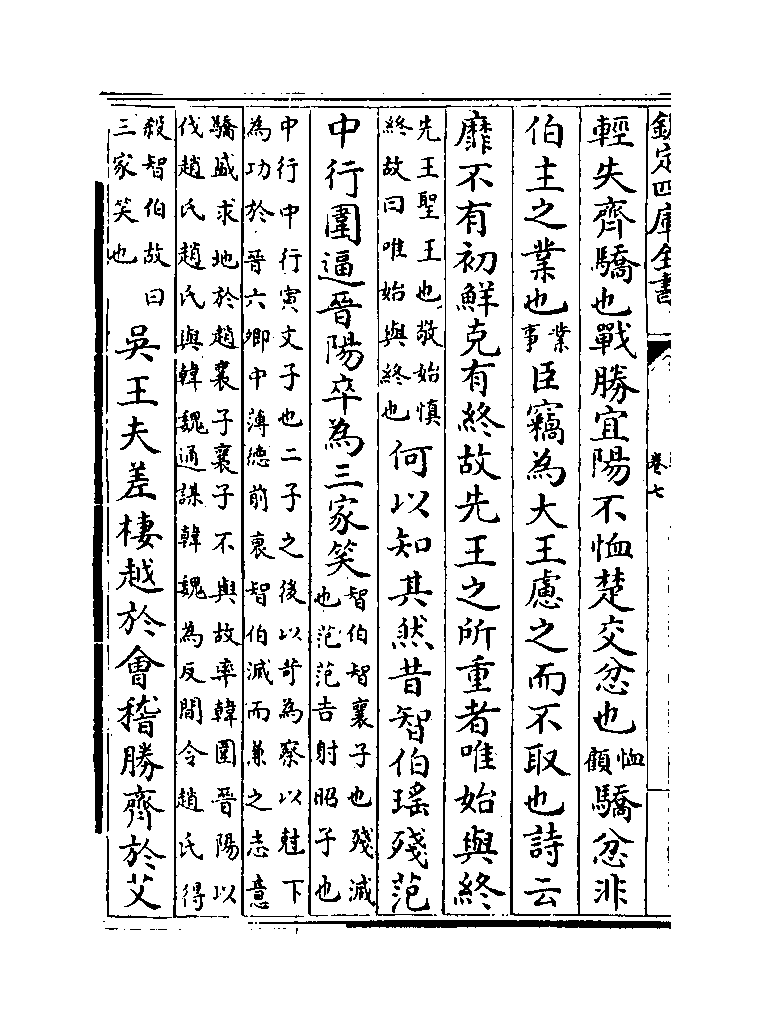 欽定四庫全書 卷七
輕失齊驕也戰勝宜陽不恤楚交忿也恤顧驕忿非
伯主之業也業事臣竊為大王慮之而不取也詩云
靡不有初鮮克有終故先王之所重者唯始與終
先王聖王也敬始慎終故曰唯始與終也何以知其然昔智伯瑶殘范
中行圍逼晉陽卒為三家笑智伯智襄子也殘滅也范范吉射昭子也
中行中行寅文子也二子之後以苛為察以尅下為功於晉六卿中薄德前衰智伯滅而兼之志意
驕盛求地於趙襄子襄子不與故率韓圍晉陽以伐趙氏趙氏與韓魏通謀韓魏為反間令趙氏得
殺智伯故曰三家笑也吳王夫差棲越於會稽勝齊於艾